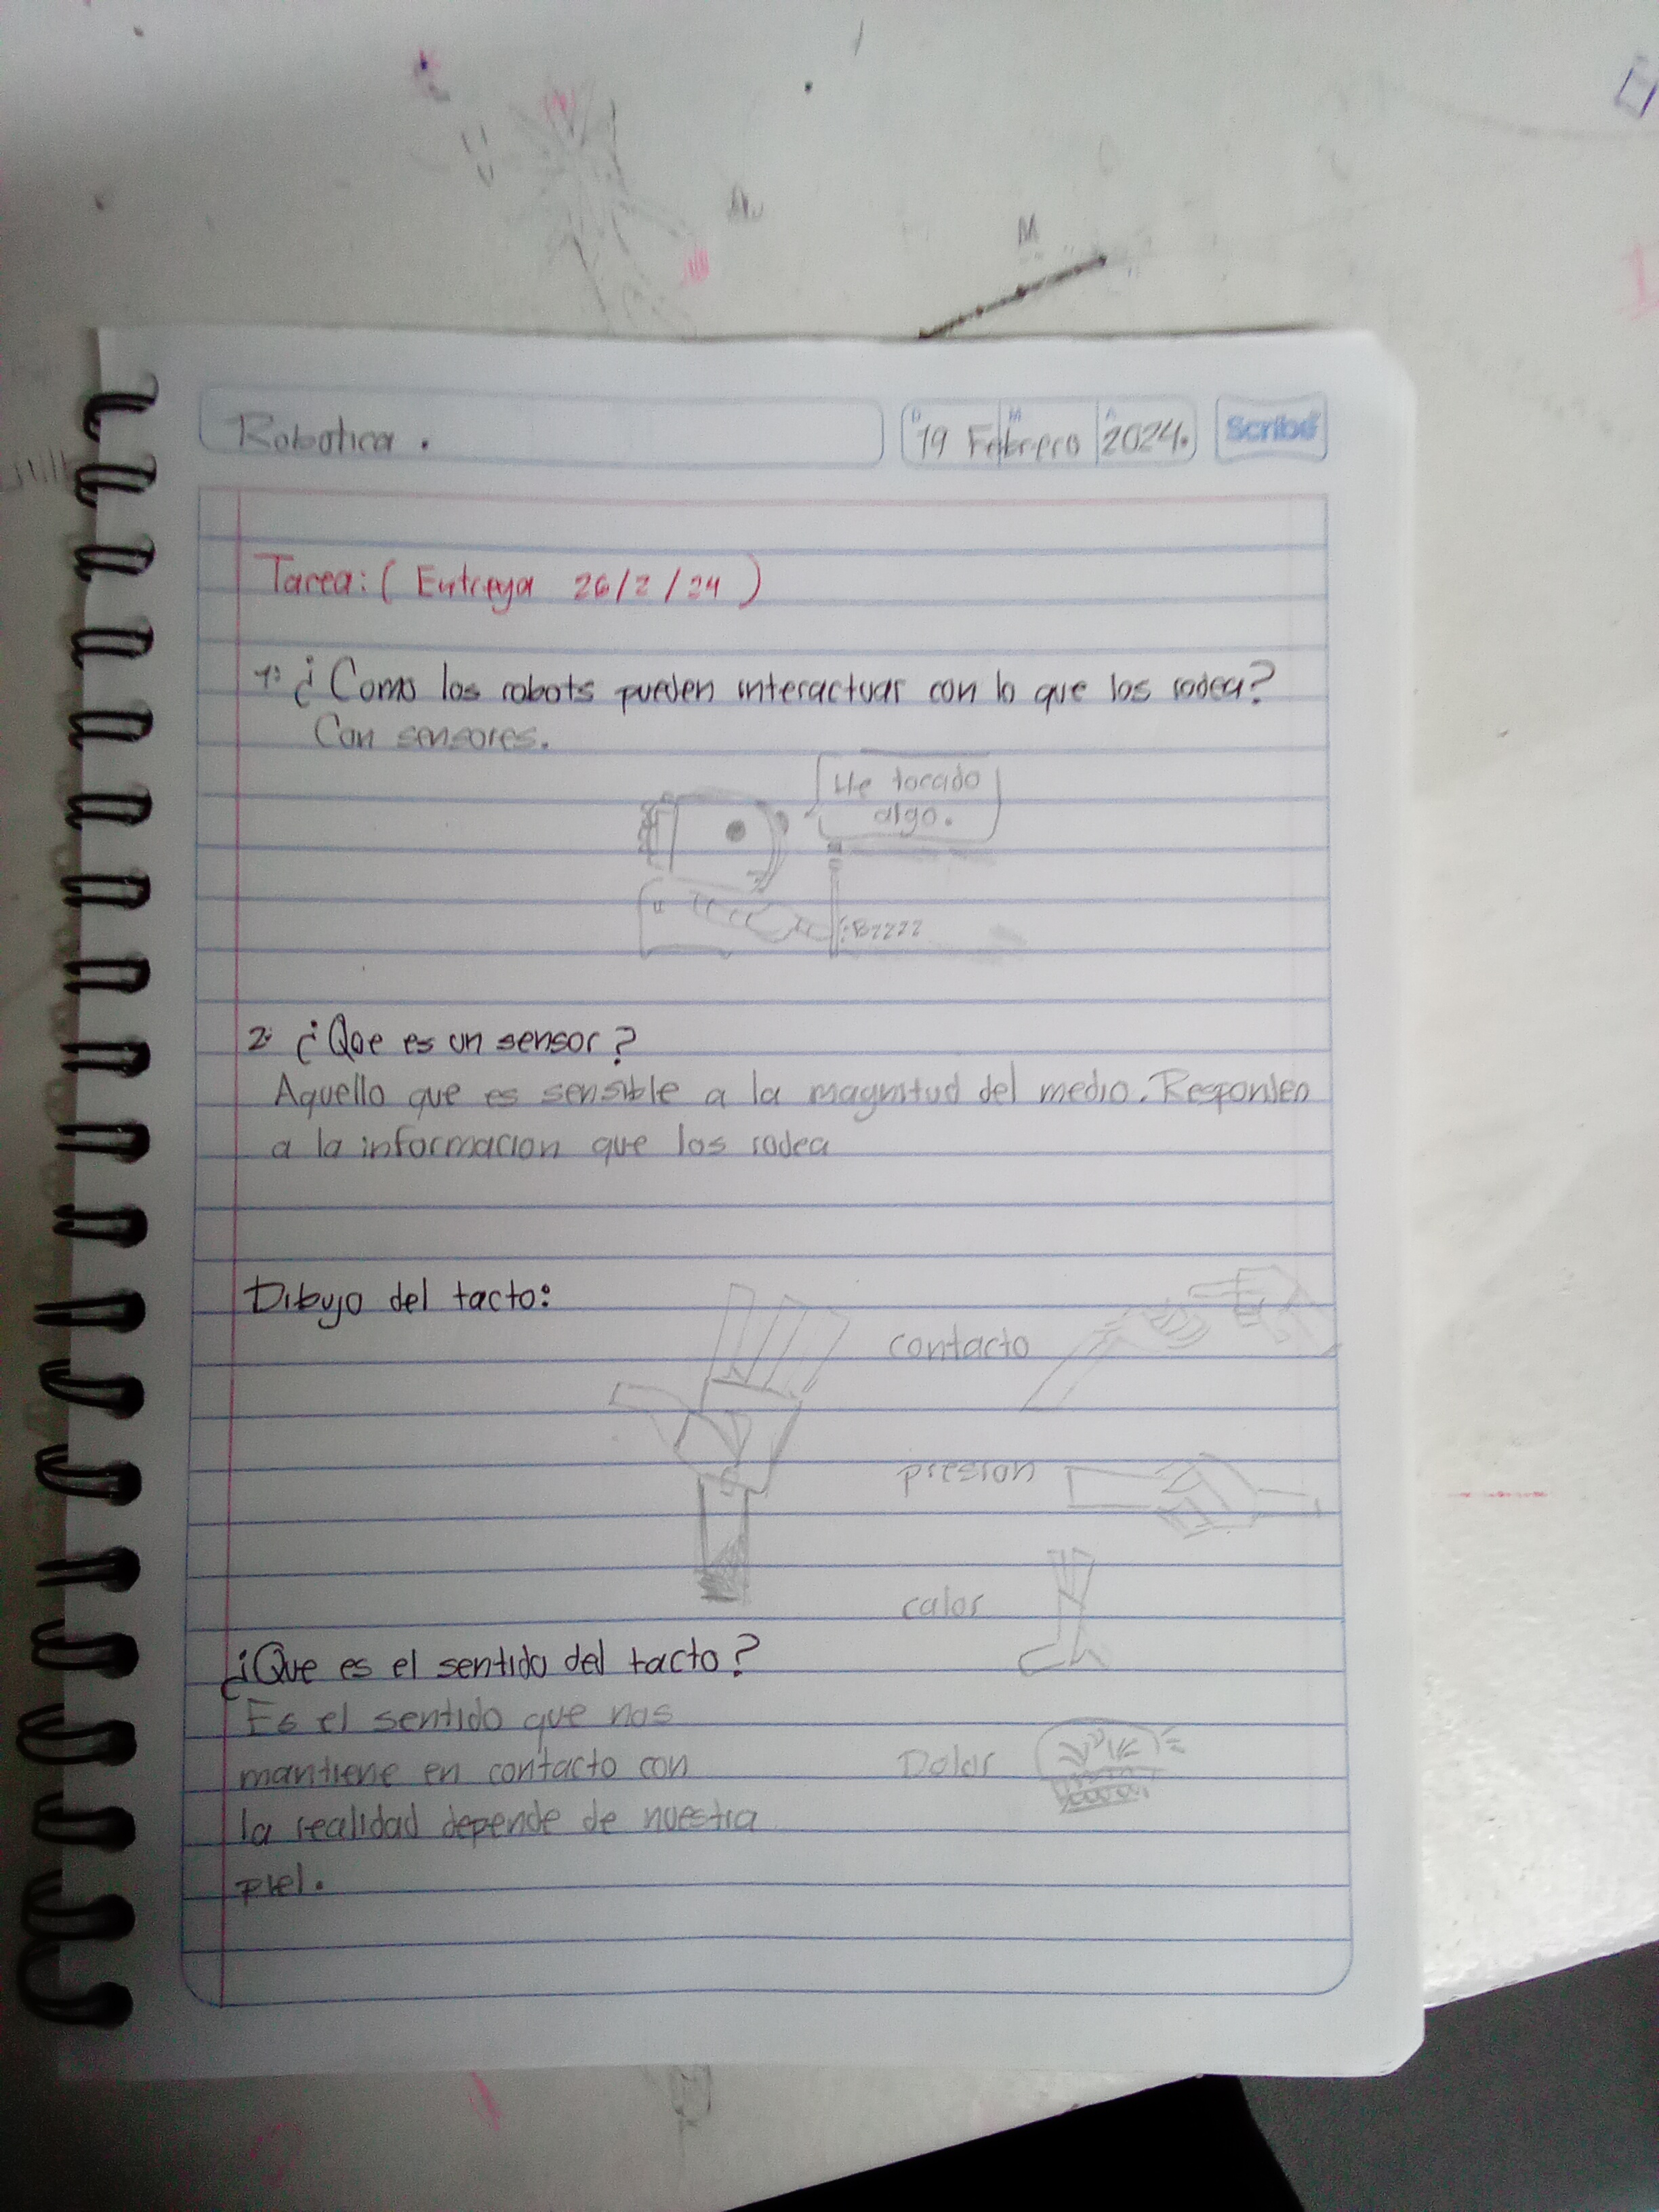 Robotica.
D M A
19 Febrero 2024.
Scribe
Tarea: ( Entrega 26/2/24 )
1: ¿Como los robots pueden interactuar con lo que los rodea?
Con sensores.
He tocado
algo.
Bzzzz
2: ¿Que es un sensor?
Aquello que es sensible a la magnitud del medio. Responden
a la informacion que los rodea
Dibujo del tacto:
contacto
presion
calor
¿Que es el sentido del tacto?
Es el sentido que nos
mantiene en contacto con
Dolor
la realidad depende de nuestra
piel.